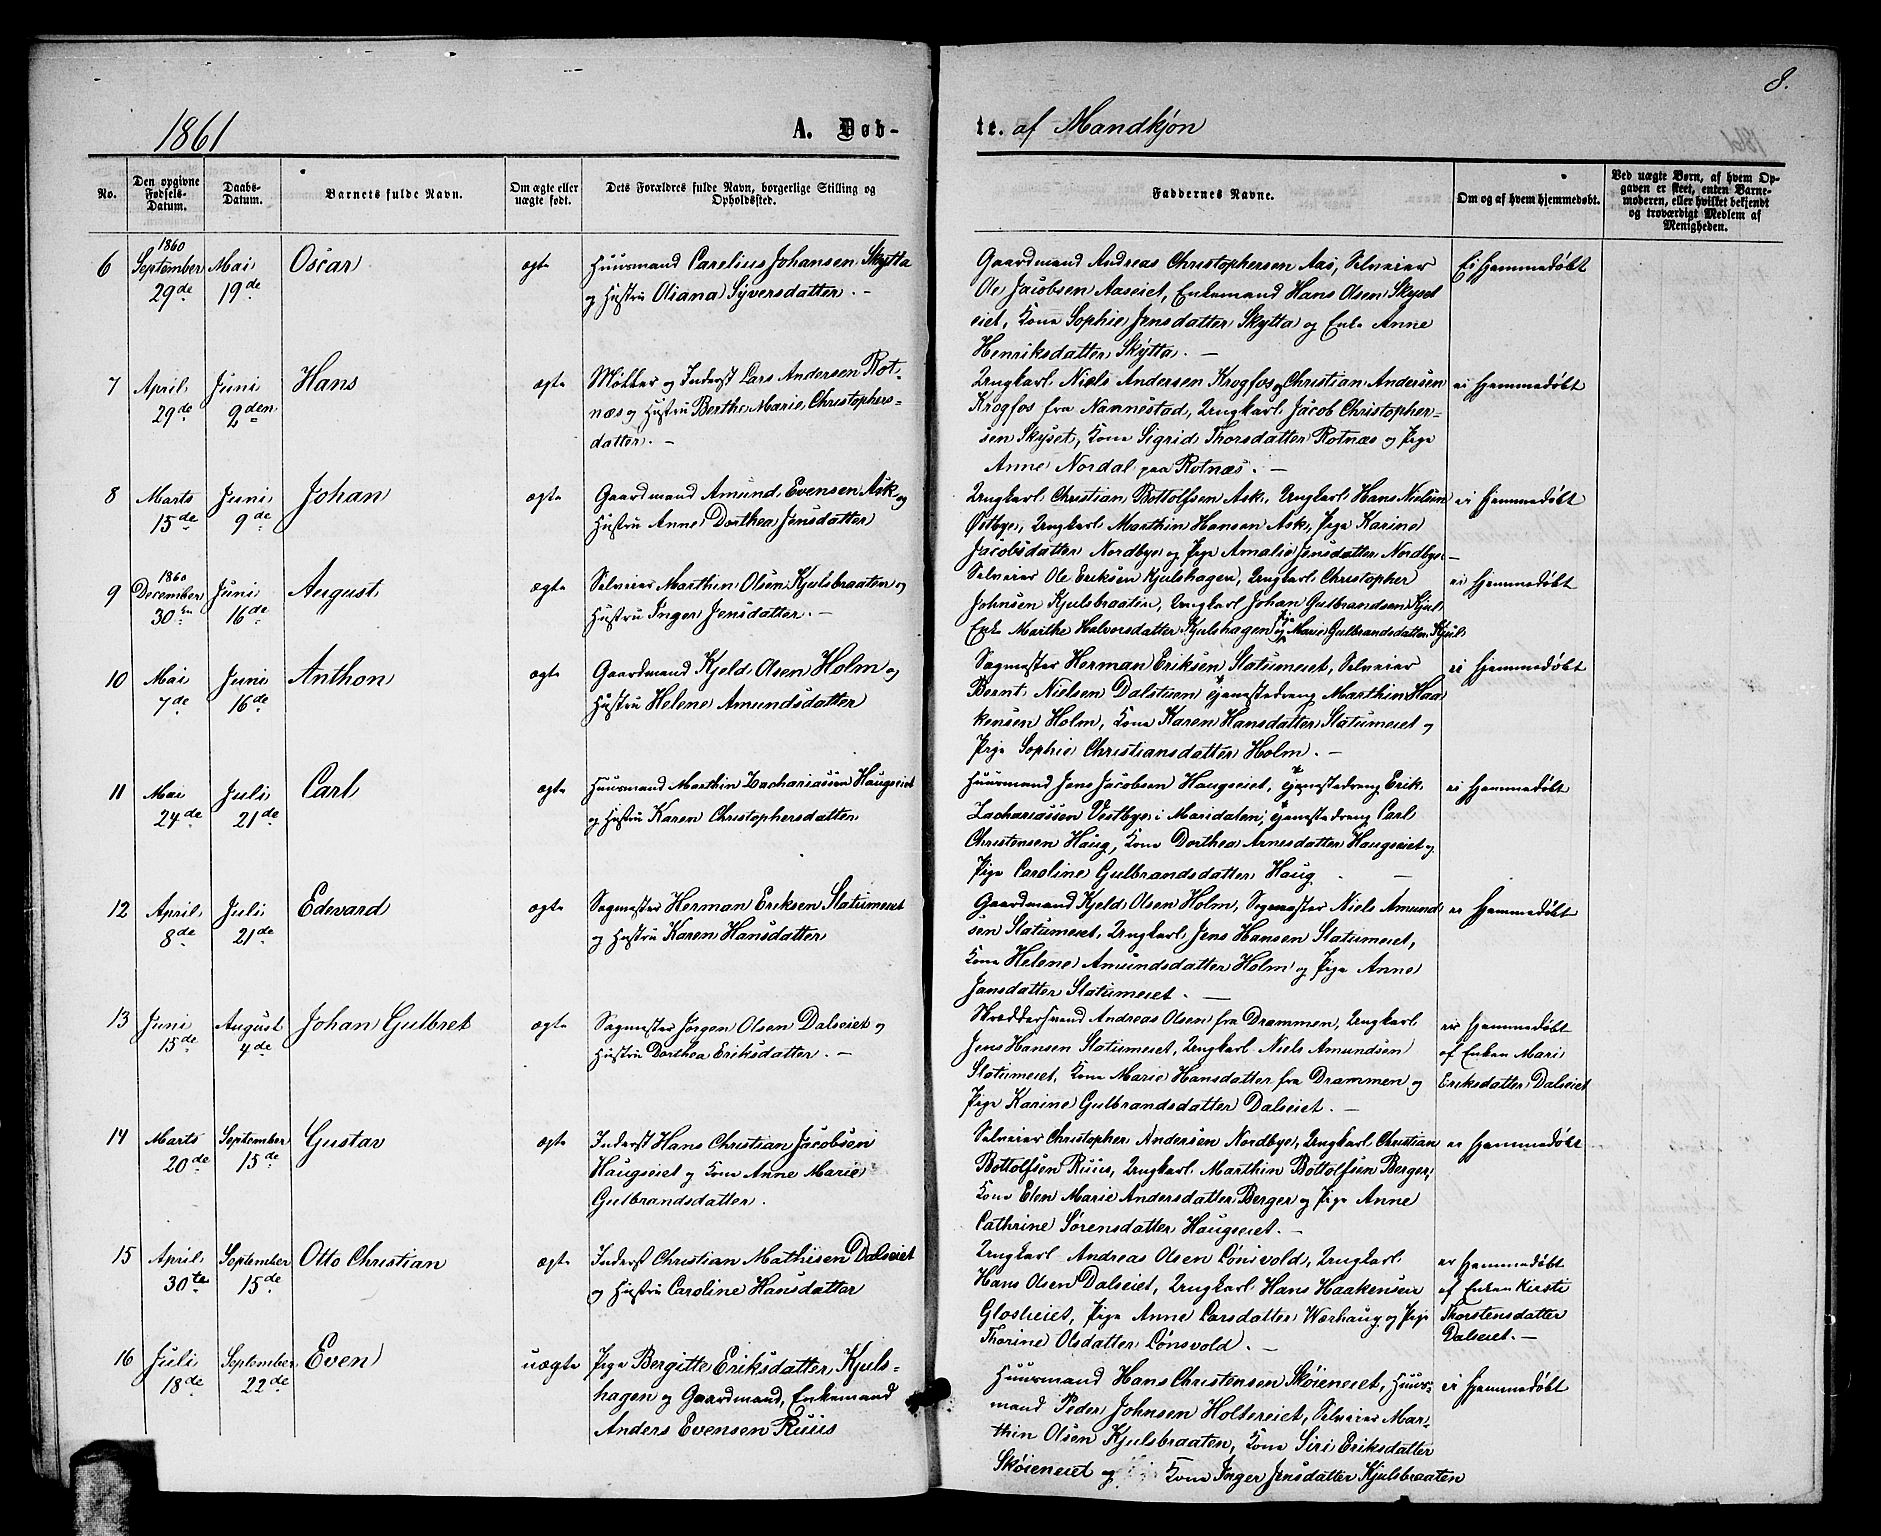 8.
1861
A. Døb-
te. af Mandkjøn
No.
Den opgivne Fødsels-Datum.
Daabs-Datum.
Barnets fulde Navn.
Om ægte eller uægte født.
Dets Forældres fulde Navn, borgerlige Stilling og Opholdssted.
Faddernes Navne.
Om og af hvem hjemmedøbt.
Ved uægte Børn, af hvem Opgaven er skeet, enten Barnemoderen, eller hvilket bekjendt og troværdigt Medlem af Menigheden.
6
1860
September
29de
Mai
19de
Oscar
ægte
Huusmand Carelius Johansen Skytta
og Hustru Oliana Syversdatter. -
Gaardmand Andreas Christophersen Aas, Selveier
Ole Jacobsen Aaseiet, Enkemand Hans Olsen Skyset
eiet, Kone Sophie Jensdatter Skytta og Enke Anne
Henriksdatter Skytta. -
Ei hjemmedøbt
7
April
29de
Juni
9den
Hans
ægte
Møller og Inderst Lars Andersen Rot-
næs og Hustru Berthe Marie Christophers-
datter. -
Ungkarl Niels Andersen Krogfos og Christian Andersen
Krogfos fra Nannestad, Ungkarl Jacob Christopher-
sen Skyset, Kone Sigrid Thorsdatter Rotnæs og Pige
Anne Nordal paa Rotnæs. -
ei hjemmedøbt
8
Marts
15de
Juni
9de
Johan
ægte
Gaardmand Amund Evensen Ask og
Hustru Anne Dorthea Jensdatter
Ungkarl Christian Bottolfsen Ask, Ungkarl Hans Nielsen
Østbye, Ungkarl Marthin Hansen Ask, Pige Karine
Jacobsdatter Nordbye og Pige Amalie Jensdatter Nordbye. -
ei hjemmedøbt
9
1860
December
30te
Juni
16de
August
ægte
Selveier Marthin Olsen Kjulsbraaten og
Hustru Inger Jensdatter. -
Selveier Ole Eriksen Kjulshagen, Ungkarl Christopher
Johnsen Kjulsbraaten, Ungkarl Johan Gulbrandsen Kjul,
Enke Marthe Halvorsdatter Kjulshagen og Pige Marie Gulbrandsdatter Kjul.
ei hjemmedøbt
10
Mai
7de
Juni
16de
Anthon
ægte
Gaardmand Kjeld Olsen Holm og
Hustru Helene Amundsdatter
Sagmester Herman Eriksen Slatumeiet, Selveier
Bernt Nielsen Dalstuen Tjenestedreng Marthin Haa-
kensen Holm, Kone Karen Hansdatter Slatumeiet og
Pige Sophie Christiansdatter Holm. -
ei hjemmedøbt
11
Mai
24de
Juli
21de
Carl
ægte
Huusmand Marthin Zachariassen Haugseiet
og Hustru Karen Christophersdatter
Huusmand Jens Jacobsen Haugseiet, Tjenestedreng Erik
Zachariassen Vestbye i Maridalen, Tjenestedreng Carl
Christensen Haug, Kone Dorthea Arnesdatter Haugseiet og
Pige Caroline Gulbrandsdatter Haug -
ei hjemmedøbt
12
April
8de
Juli
21de
Edevard
ægte
Sagmester Herman Eriksen Slatumeiet
og Hustru Karen Hansdatter
Gaardmand Kjeld Olsen Holm, Sagmester Niels Amund-
sen Slatumeiet, Ungkarl Jens Hansen Slatumeiet,
Kone Helene Amundsdatter Holm og Pige Anne
Jansdatter Slatumeiet. -
ei hjemmedøbt
13
Juni
15de
August
4de
Johan Gulbret
ægte
Sagmester Jørgen Olsen Dalseiet og
Hustru Dorthea Eriksdatter. -
Andreas Olsen fra Drammen, Ungkarl
Jens Hansen Slatumeiet, Ungkarl Niels Amundsen
Slatumeiet, Kone Marie Hansdatter fra Drammen og
Pige Karine Gulbrandsdatter Dalseiet. -
er hjemmedøbt
af Enken Mari
Eriksdatter Dalseiet
14
Marts
20de
September
15de
Gustav
ægte
Inderst Hans Christian Jacobsen
Haugseiet og Kone Anne Marie
Gulbrandsdatter.
Selveier Christopher Andersen Nordbye, Ungkarl Christian
Bottolfsen Ruus, Ungkarl Marthin Bottolfsen Berger,
Kone Elen Marie Andersdatter Berger og Pige Anne
Cathrine Sørensdatter Haugseiet. -
er hjemmedøbt
15
April
30te
September
15de
Otto Christian
ægte
Inderst Christian Mathisen Dalseiet
og Hustru Caroline Hansdatter
Ungkarl Andreas Olsen Lønsvold, Ungkarl
Hans Olsen Dalseiet, Ungkarl Hans Haakensen
Glosheiet, Pige Anne Larsdatter Wærhaug og Pige
Thorine Olsdatter Lønsvold. -
er hjemmedøbt
af Enken Kirsti
Thorstensdatter
Dalseiet. -
16
Juli
18de
September
22de
Even
uægte
Pige Bergitte Eriksdatter Kjuls-
hagen og Gaardmand, Enkemand
Anders Evensen Ruus
Huusmand Hans Christensen Skøieneiet, Huus-
mand Peder Johnsen Holtereiet, Selveier Mar-
thin Olsen Kjulsbraaten, Kone Siri Eriksdatter
Skøieneiet og Kone Inger Jensdatter Kjulsbraaten
ei hjemmedøbt